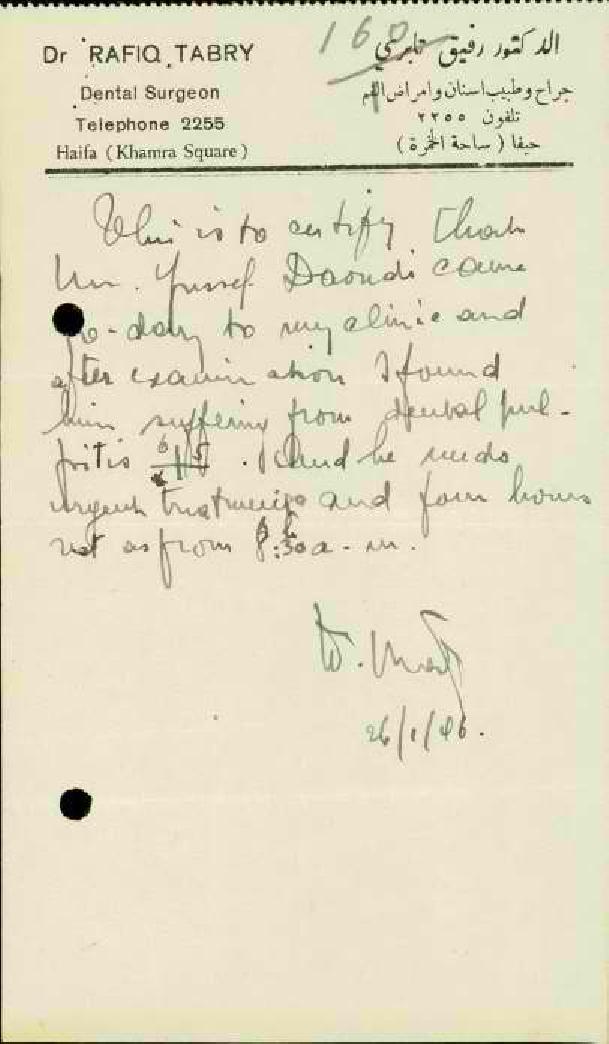 160
Dr RAFIQ TABRY
Dental Surgeon
Telephone 2255
Haifa (Khamra Square)
الدكتور رفيق تابري
جراح وطبيب اسنان وامراض الفم
تلفون ٢٢٥٥
حيفا (ساحة الخمرة)
This is to certify that
Mr. Yussef Daoudi came
to-day to my clinic and
after examination I found
him suffering from dental pul-
pitis . and he needs
urgent treatment and four hours
rest as from 8:30 a.m.
26/1/46.